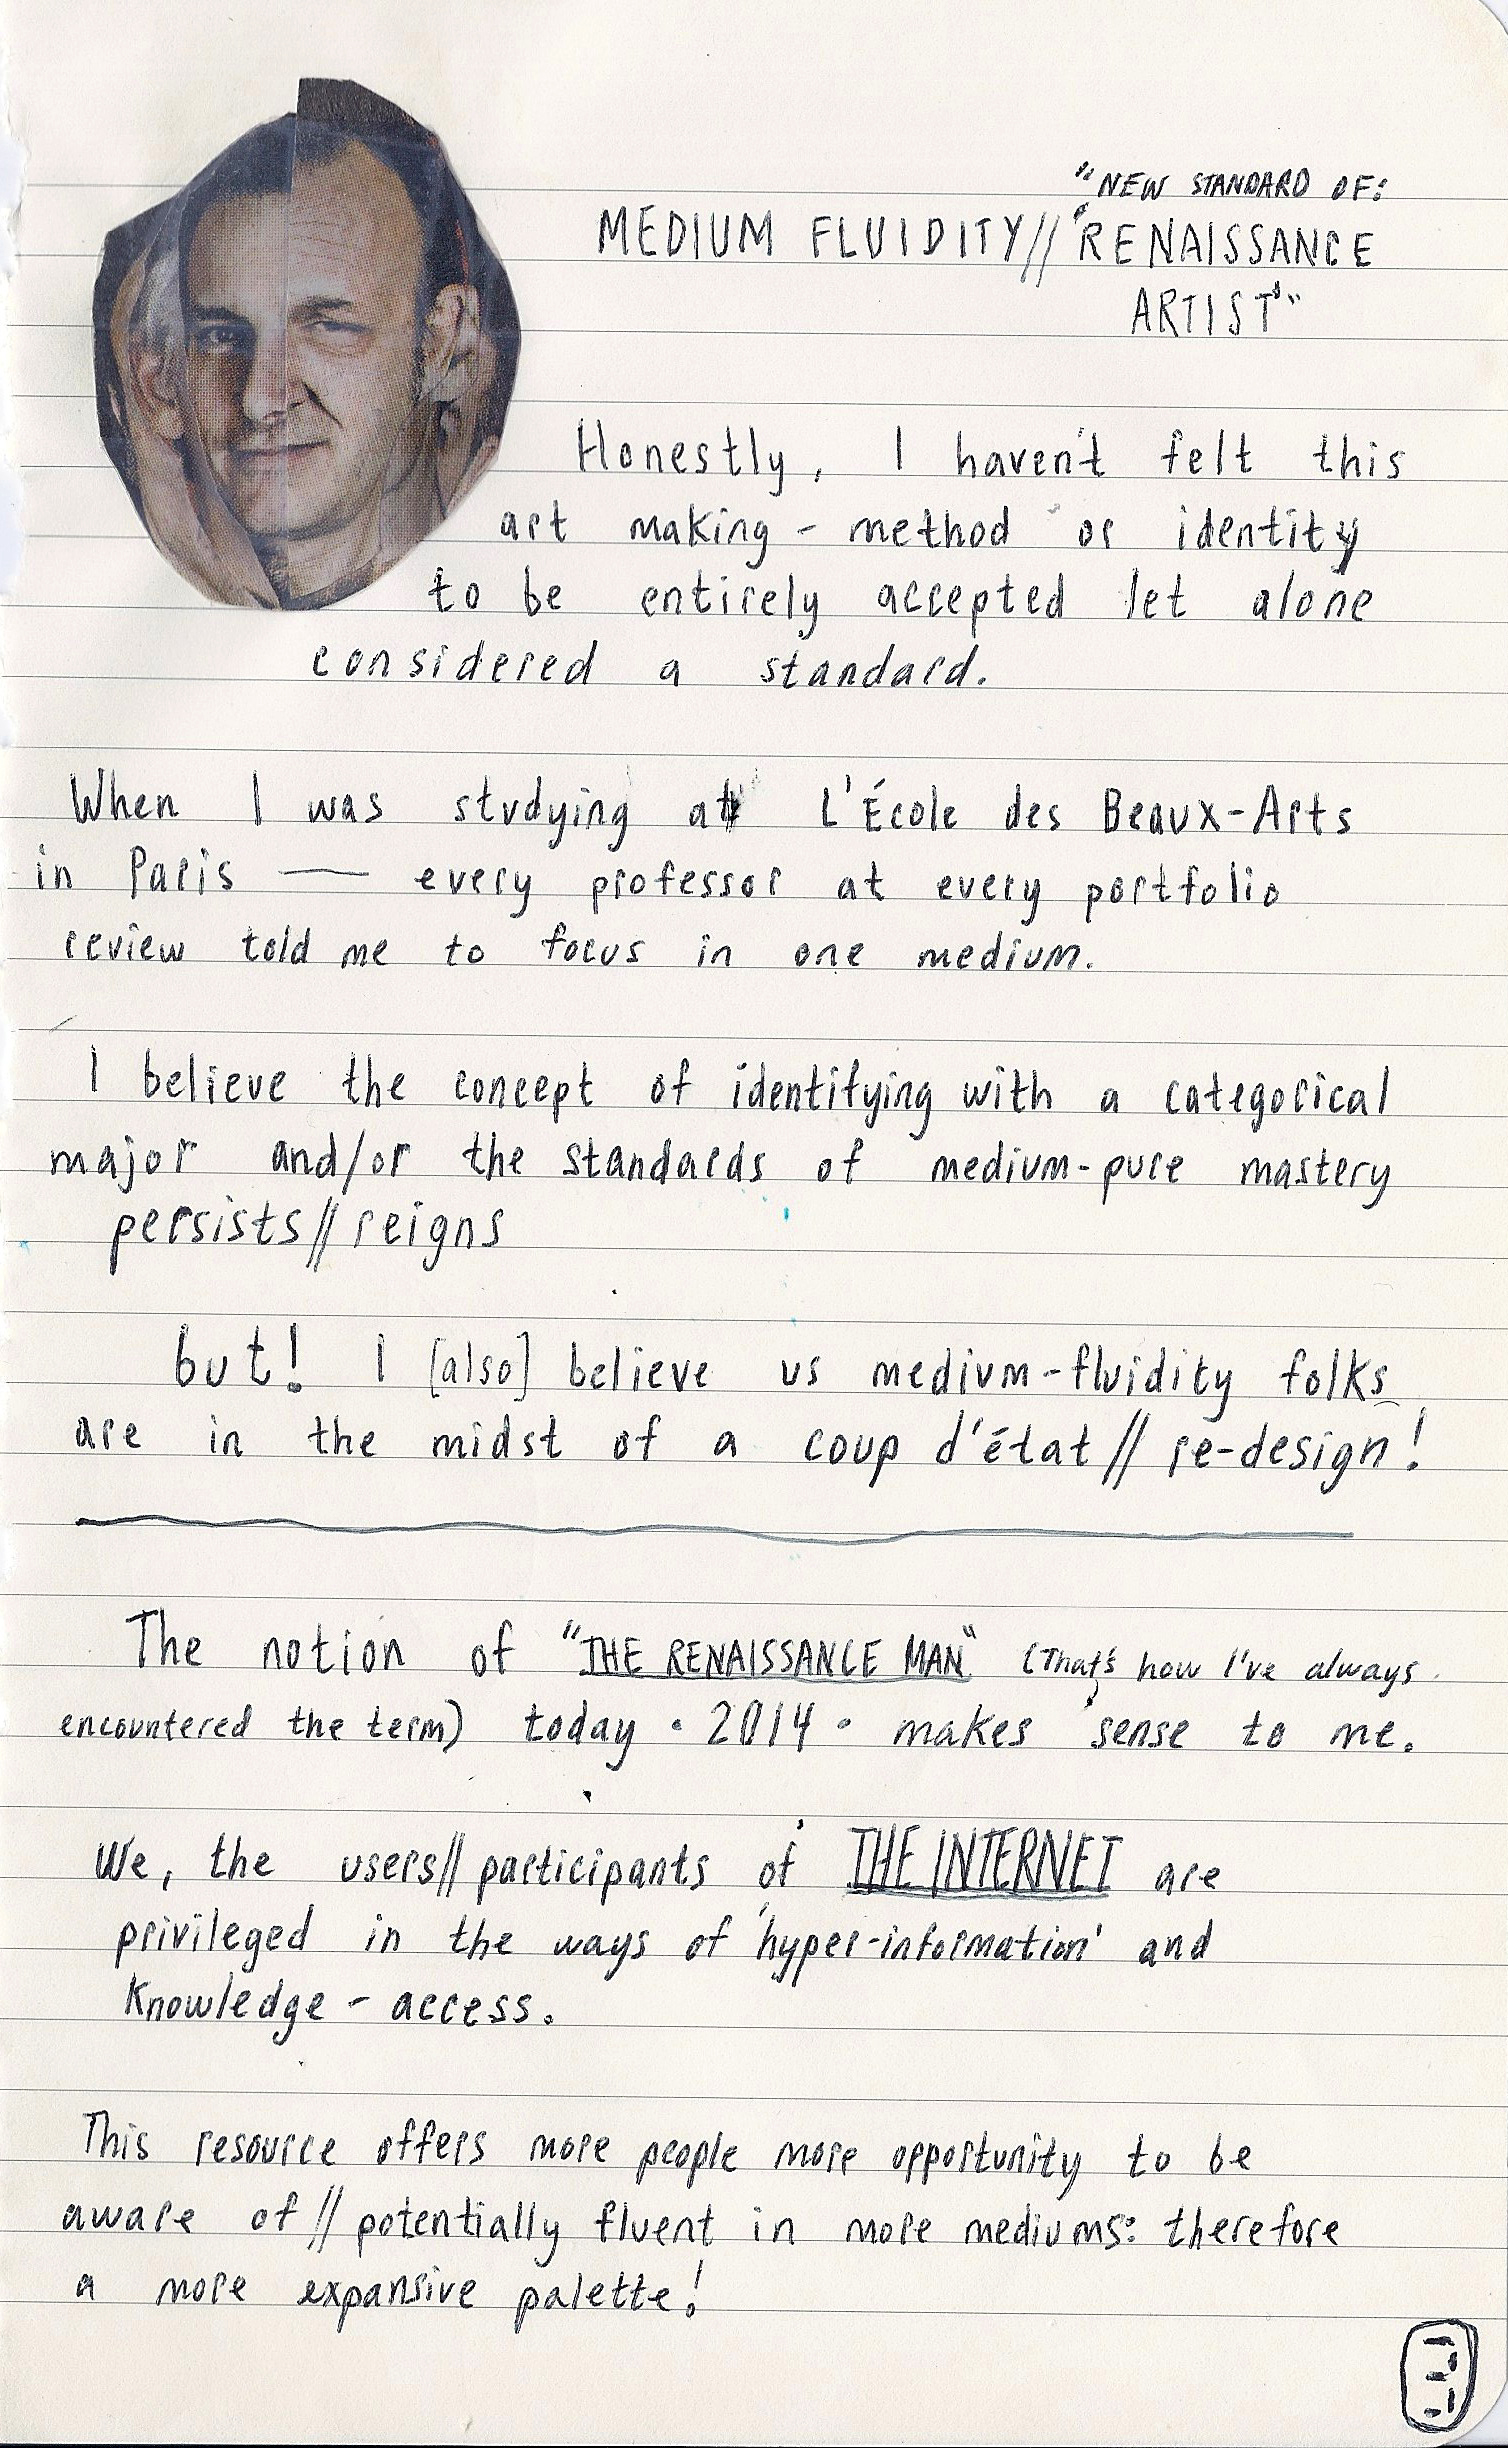 "NEW STANDARD OF:
MEDIUM FLUIDITY// 'RENAISSANCE
ARTIST'"
Honestly, I haven't felt this
art making - method or identity
to be entirely accepted let alone
considered a standard.
When I was studying at L'École des Beaux-Arts
in Paris — every professor at every portfolio
review told me to focus in one medium.
I believe the concept of identifying with a categorical
major and/or the standards of medium-pure mastery
persists//reigns
but! I [also] believe us medium-fluidity folks
are in the midst of a coup d'état// re-design!
The notion of "THE RENAISSANCE MAN" (that's how I've always
encountered the term) today • 2014 • makes sense to me.
We, the users//participants of THE INTERNET are
privileged in the ways of 'hyper-information' and
knowledge - access.
This resource offers more people more opportunity to be
aware of//potentially fluent in more mediums: therefore
a more expansive palette!
3